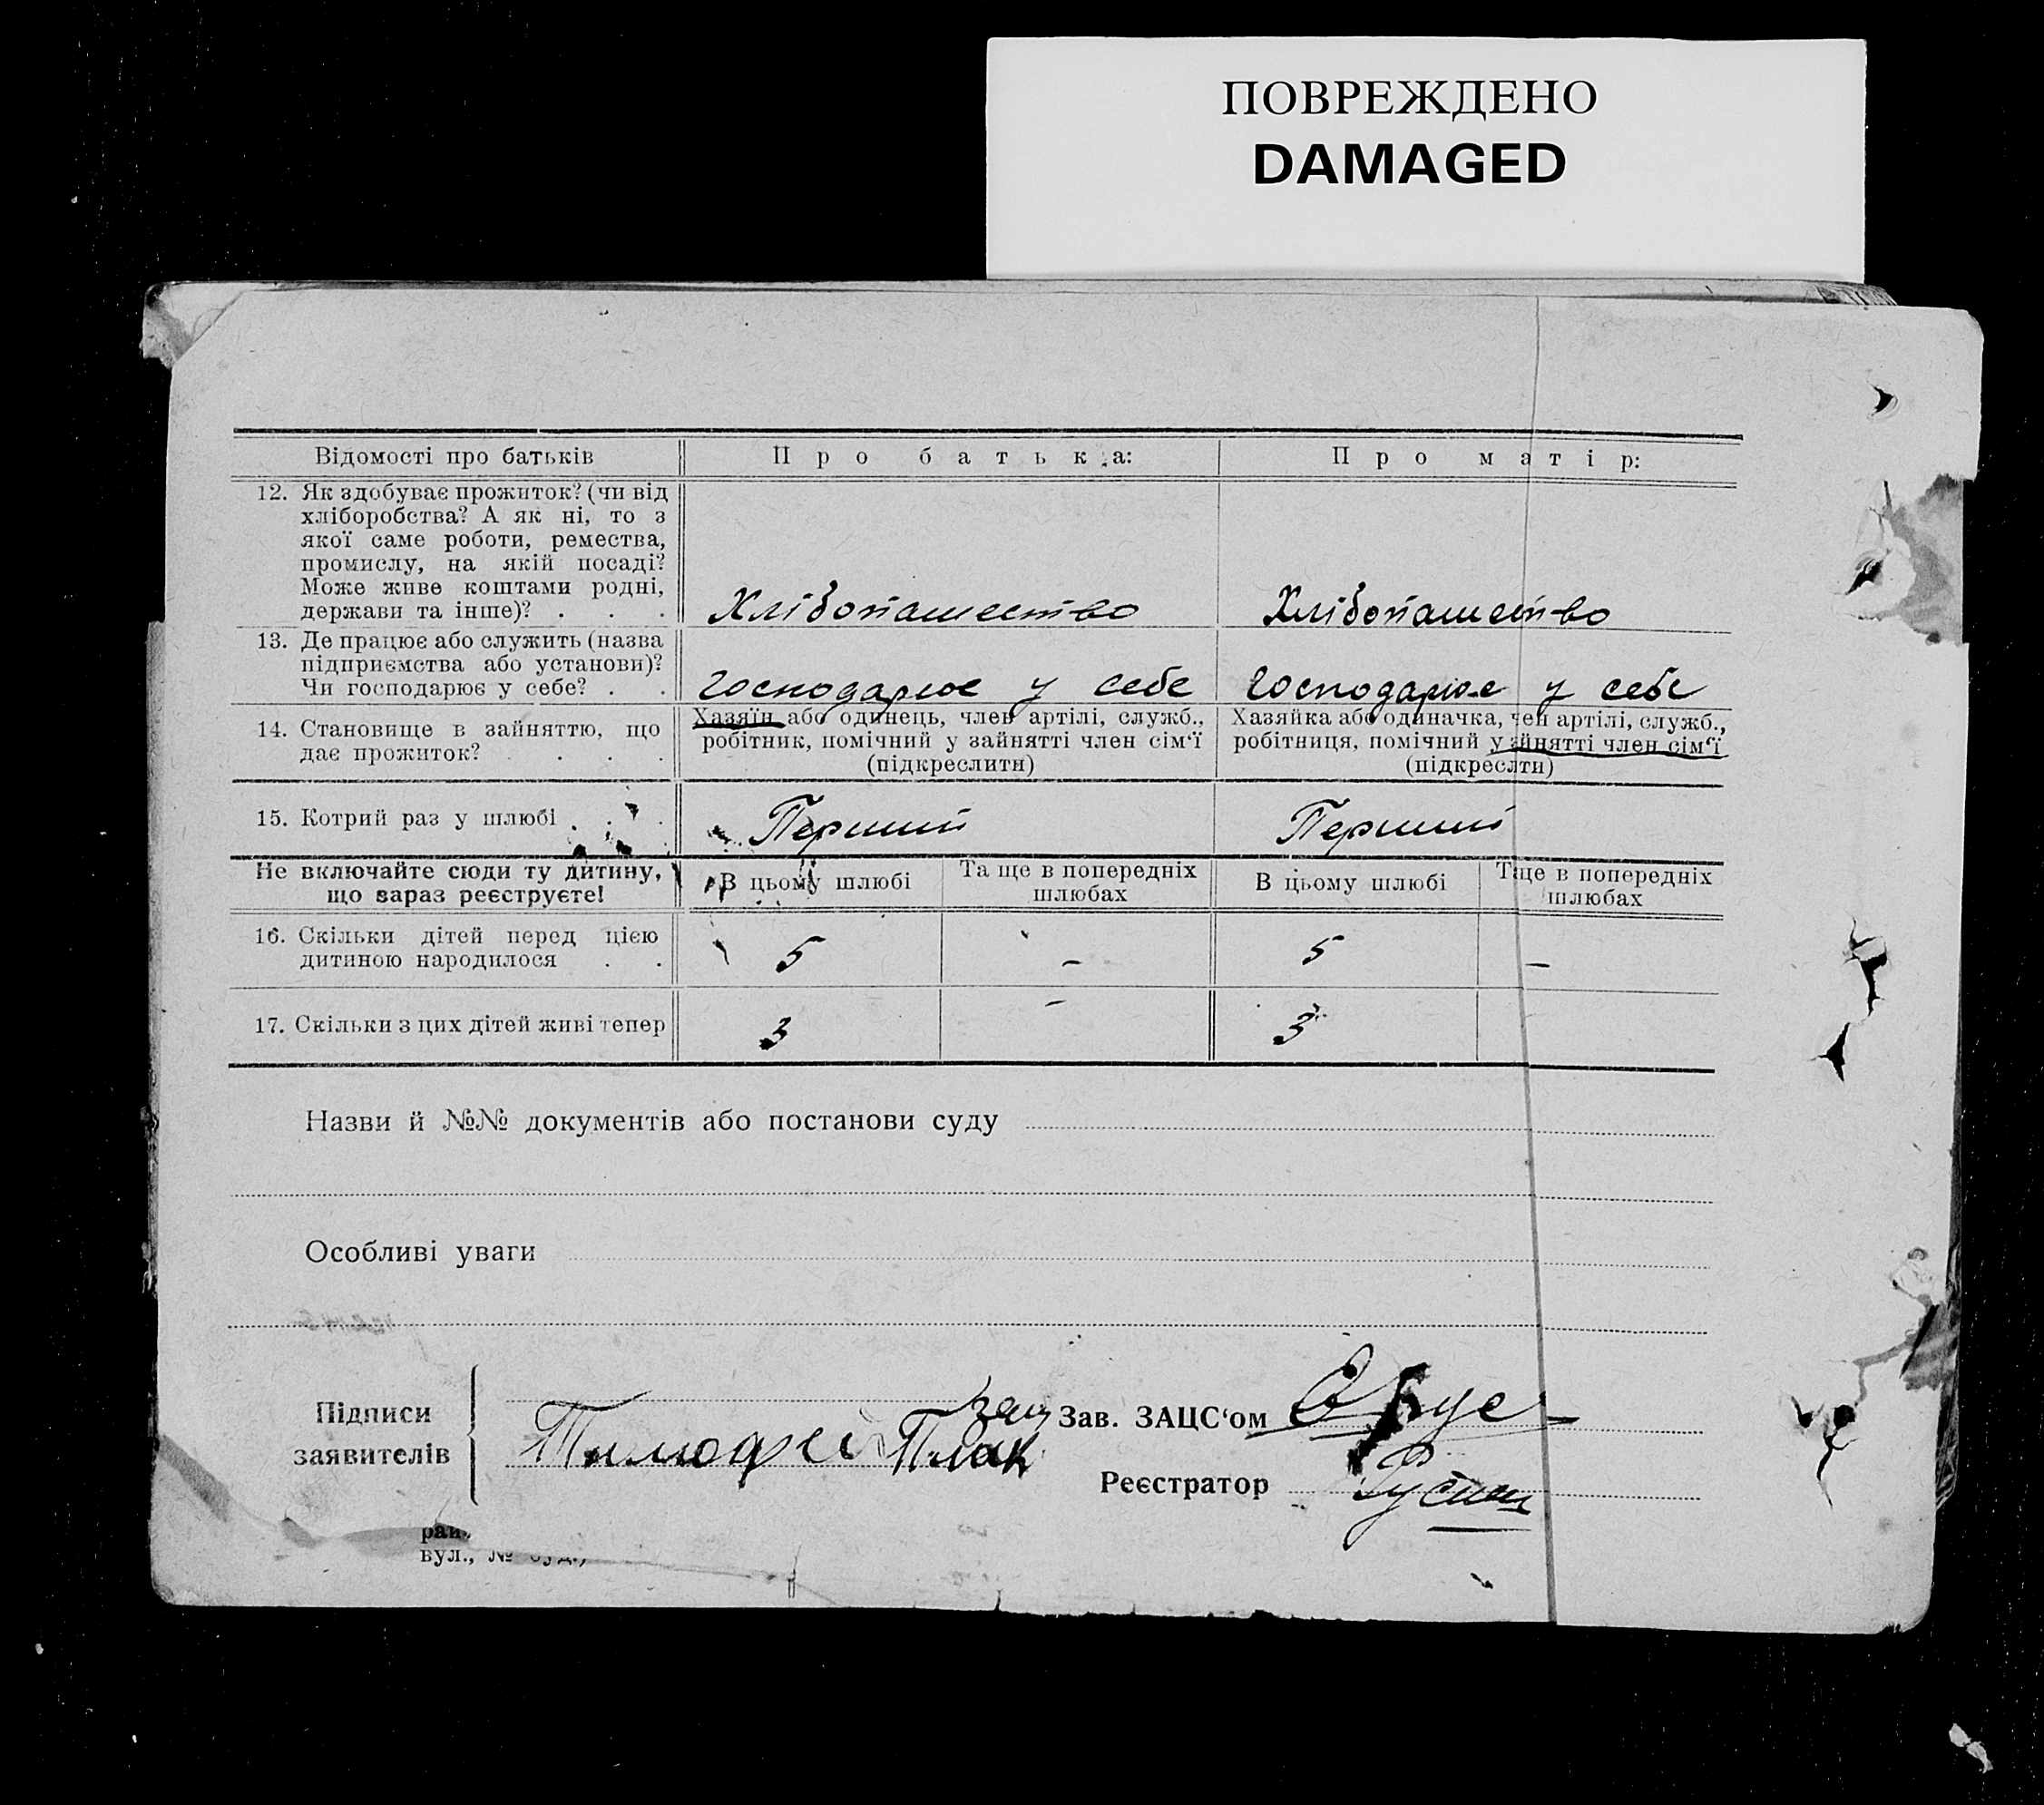 ПОВРЕЖДЕНО
DAMAGED
Відомості про батьків
Про батька:
Про матір:
12. Як здобуває прожиток? (чи від
хліборобства? А як ні, то з
якої саме роботи, ремества,
промислу, на якій посаді?
Може живе коштами родні,
держави та інше)? . . .
Хлібопашество
Хлібопашество
13. Де працює або служить (назва
підприємства або установи)?
Чи господарює у себе? . .
господарює у себе
господарює у себе
14. Становище в зайняттю, що
дає прожиток? . . . .
Хазяїн або одинець, член артілі, служб.,
робітник, помічний у зайнятті член сім'ї
(підкреслити)
Хазяйка або одиначка, чен артілі, служб.,
робітниця, помічний у зйнятті член сім'ї
(підкреслти)
15. Котрий раз у шлюбі . . .
Перший
Перший
Не включайте сюди ту дитину,
що зараз реєструєте!
В цьому шлюбі
Та ще в попередніх
шлюбах
В цьому шлюбі
Т ще в попередніх
шлюбах
16. Скільки дітей перед цією
дитиною народилося . .
5
–
5
–
17. Скільки з цих дітей живі тепер
3
–
3
Назви й №№ документів або постанови суду
Особливі уваги
Підписи
заявителів
Тимофей
Зав. ЗАЦС'ом
Реєстратор
вул., №